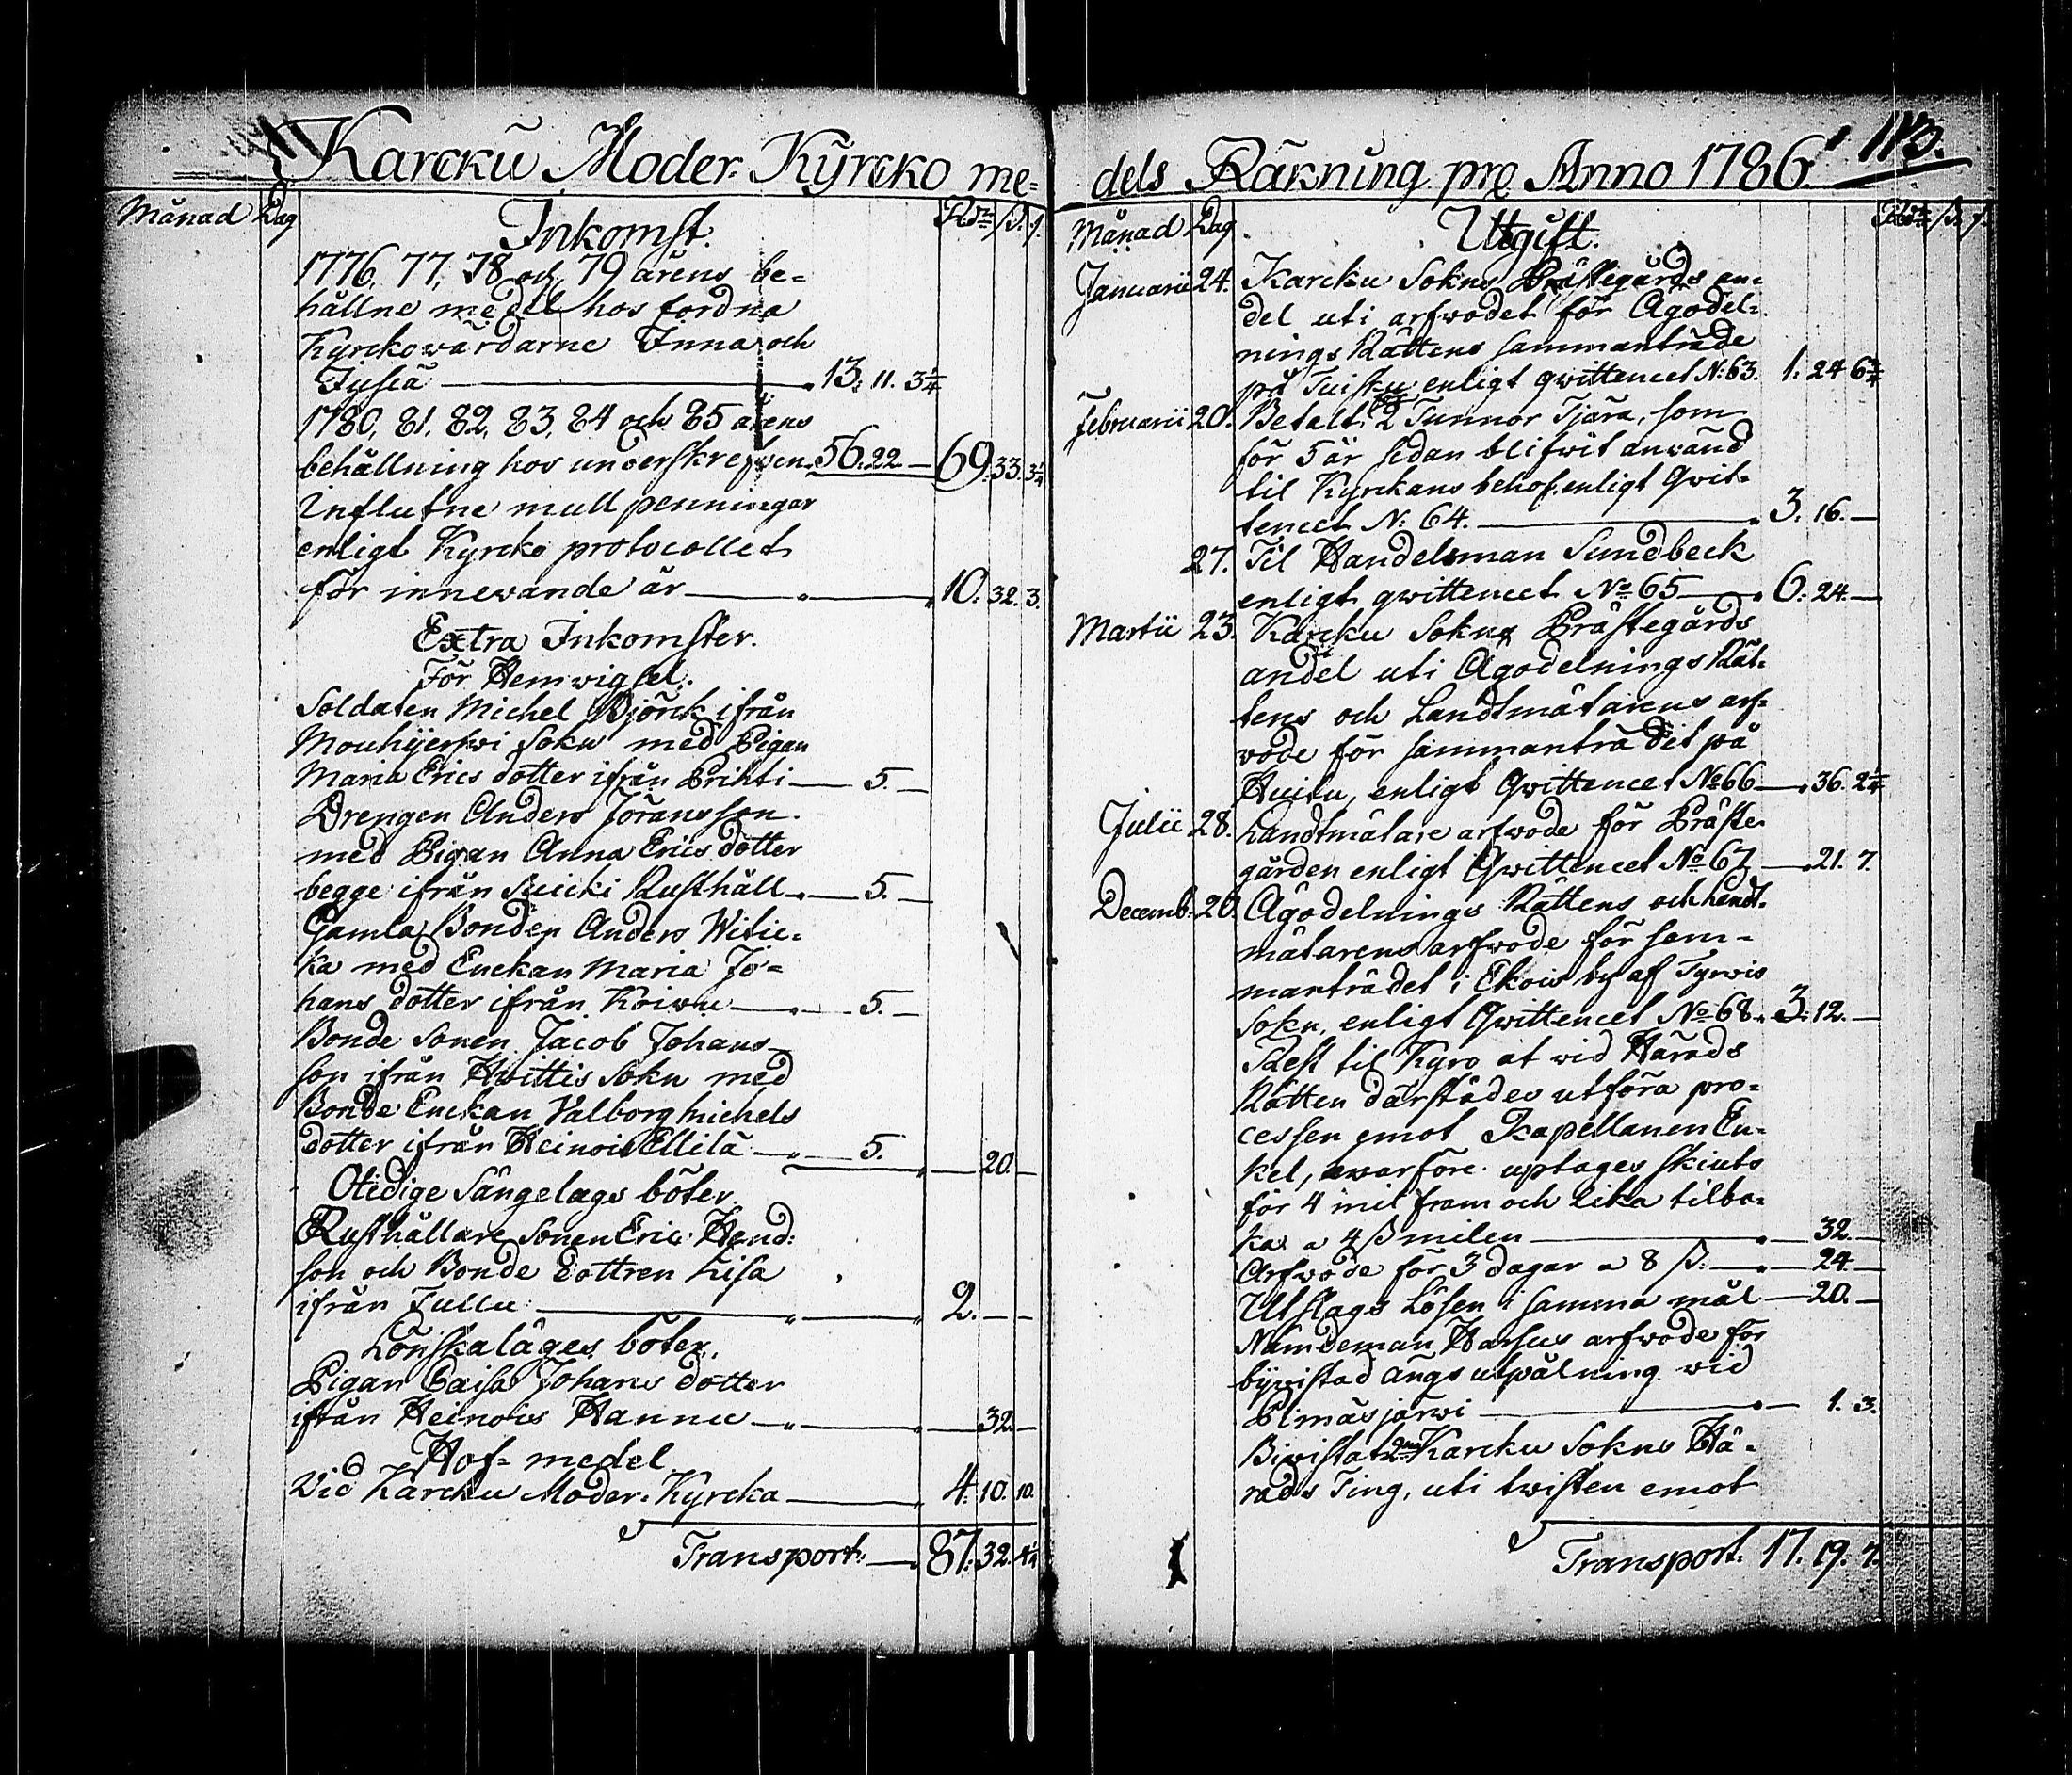 Karcku Moder-Kyrcko me=
Månad Dag Inkomst. R:dr ß. f.
1776, 77, 78 och 79 årens be=
hållne medel hos fordna
Kyrckowärdarne Inna och
Tysiä 13. 11. 3 1/4
1780, 81, 82, 83, 84 och 85 årens
behållning hos underskrefwen 56. 22.— 69. 33. 3 1/4
Influtne mull penningar
enligt Kyrcko protocollet
för innewande år 10. 32. 3.
Extra Inkomster.
För Hemwigsel.
Soldaten Michel Björck ifrån
Mouhijerfwi Sokn med Pigan
Maria Erics dotter ifrån Prihti — 5. —
Drengen Anders Jöransson
med Pigan Anna Erics dotter
begge ifrån Suicki Rusthåll — 5. —
Gamla Bonden Anders Witic=
ka med Enckan Maria Jo=
hans dotter ifrån Koiwu — 5. —
Bonde Sonen Jacob Johans
son ifrån Hwittis Sokn med
Bonde Enckan Valborg Michels
dotter ifrån Heinois Ellilä — 5. — 20. —
Otidige Sängelags böter.
Rusthållare Sonen Eric Hend:
son och Bonde Dottren Lisa
ifrån Tullu 2. — —
Lönskaläges böter.
Pigan Caisa Johans dotter
ifrån Heinois Hannu — 32. —
Hof= medel
Vid Karcku Moder-Kyrcka 4. 10. 10.
Transport. — 87. 32. 4 1/4
dels Räkning pro Anno 1786. 113.
Månad Dag Utgift. R:dr ß. f.
Januarii 24. Karcku Sokns Prästegårds an=
del uti arfwodet för Ägodel=
nings Rättens sammanträde
på Tuisku enligt qwittencet N: 63. 1. 24 6 3/4
Februarii 20. Betalt 2 Tunnor Tjära, som
för 5 år sedan blifwit anwänd
til Kyrckans behof enligt Qwit=
tencet N: 64. 3. 16. —
27. Til Handelsman Sundbeck
enligt qwittencet No 65 — 6. 24. —
Martii 23. Karcku Sokns Prästegårds
andel uti Ägodelnings Rät=
tens och Landtmätarens arf=
wode för sammanträdet på
Huitu, enligt Qwittencet No 66 — 36. 2 1/4
Julii 28. Landtmätare arfwode för Präste
gården enligt Qwittencet No 67 — 21. 7.
Decemb: 20. Ägodelnings Rättens och Landt=
mätarens arfwode för sam=
manträdet i Ekois by af Tyrwis
Sokn, enligt Qwittencet No 68. 3. 12. —
Rest til Kyro at wid Härads
Rätten därstädes utföra pro=
cessen emot Kapellanen En=
kel, hwarföre uptages skiuts
för 4 mil fram och lika tilba=
ka a 4 ß milen — 32. —
Arfwode för 3 dagar a 8 ß. — 24. —
Utslags Lösen i samma mål — 20. —
Nämdeman Harjus arfwode för
bywistad ängs utpålning wid
järwi — 1. 3.
Biwistat Karcku Sokns Hä=
rads Ting, uti twisten emot
Transport. 17. 19. 7.